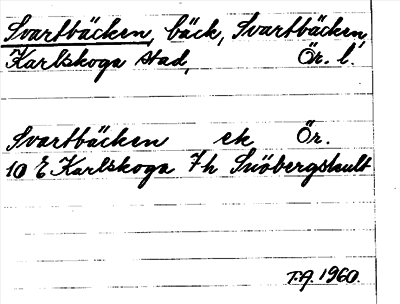 Svartbäcken, bäck, Svartbäcken,
Karlskoga stad, Ör. l.
Svartbäcken ek Ör.
10 E Karlskoga 7h Snöbergshult
T.A. 1960.